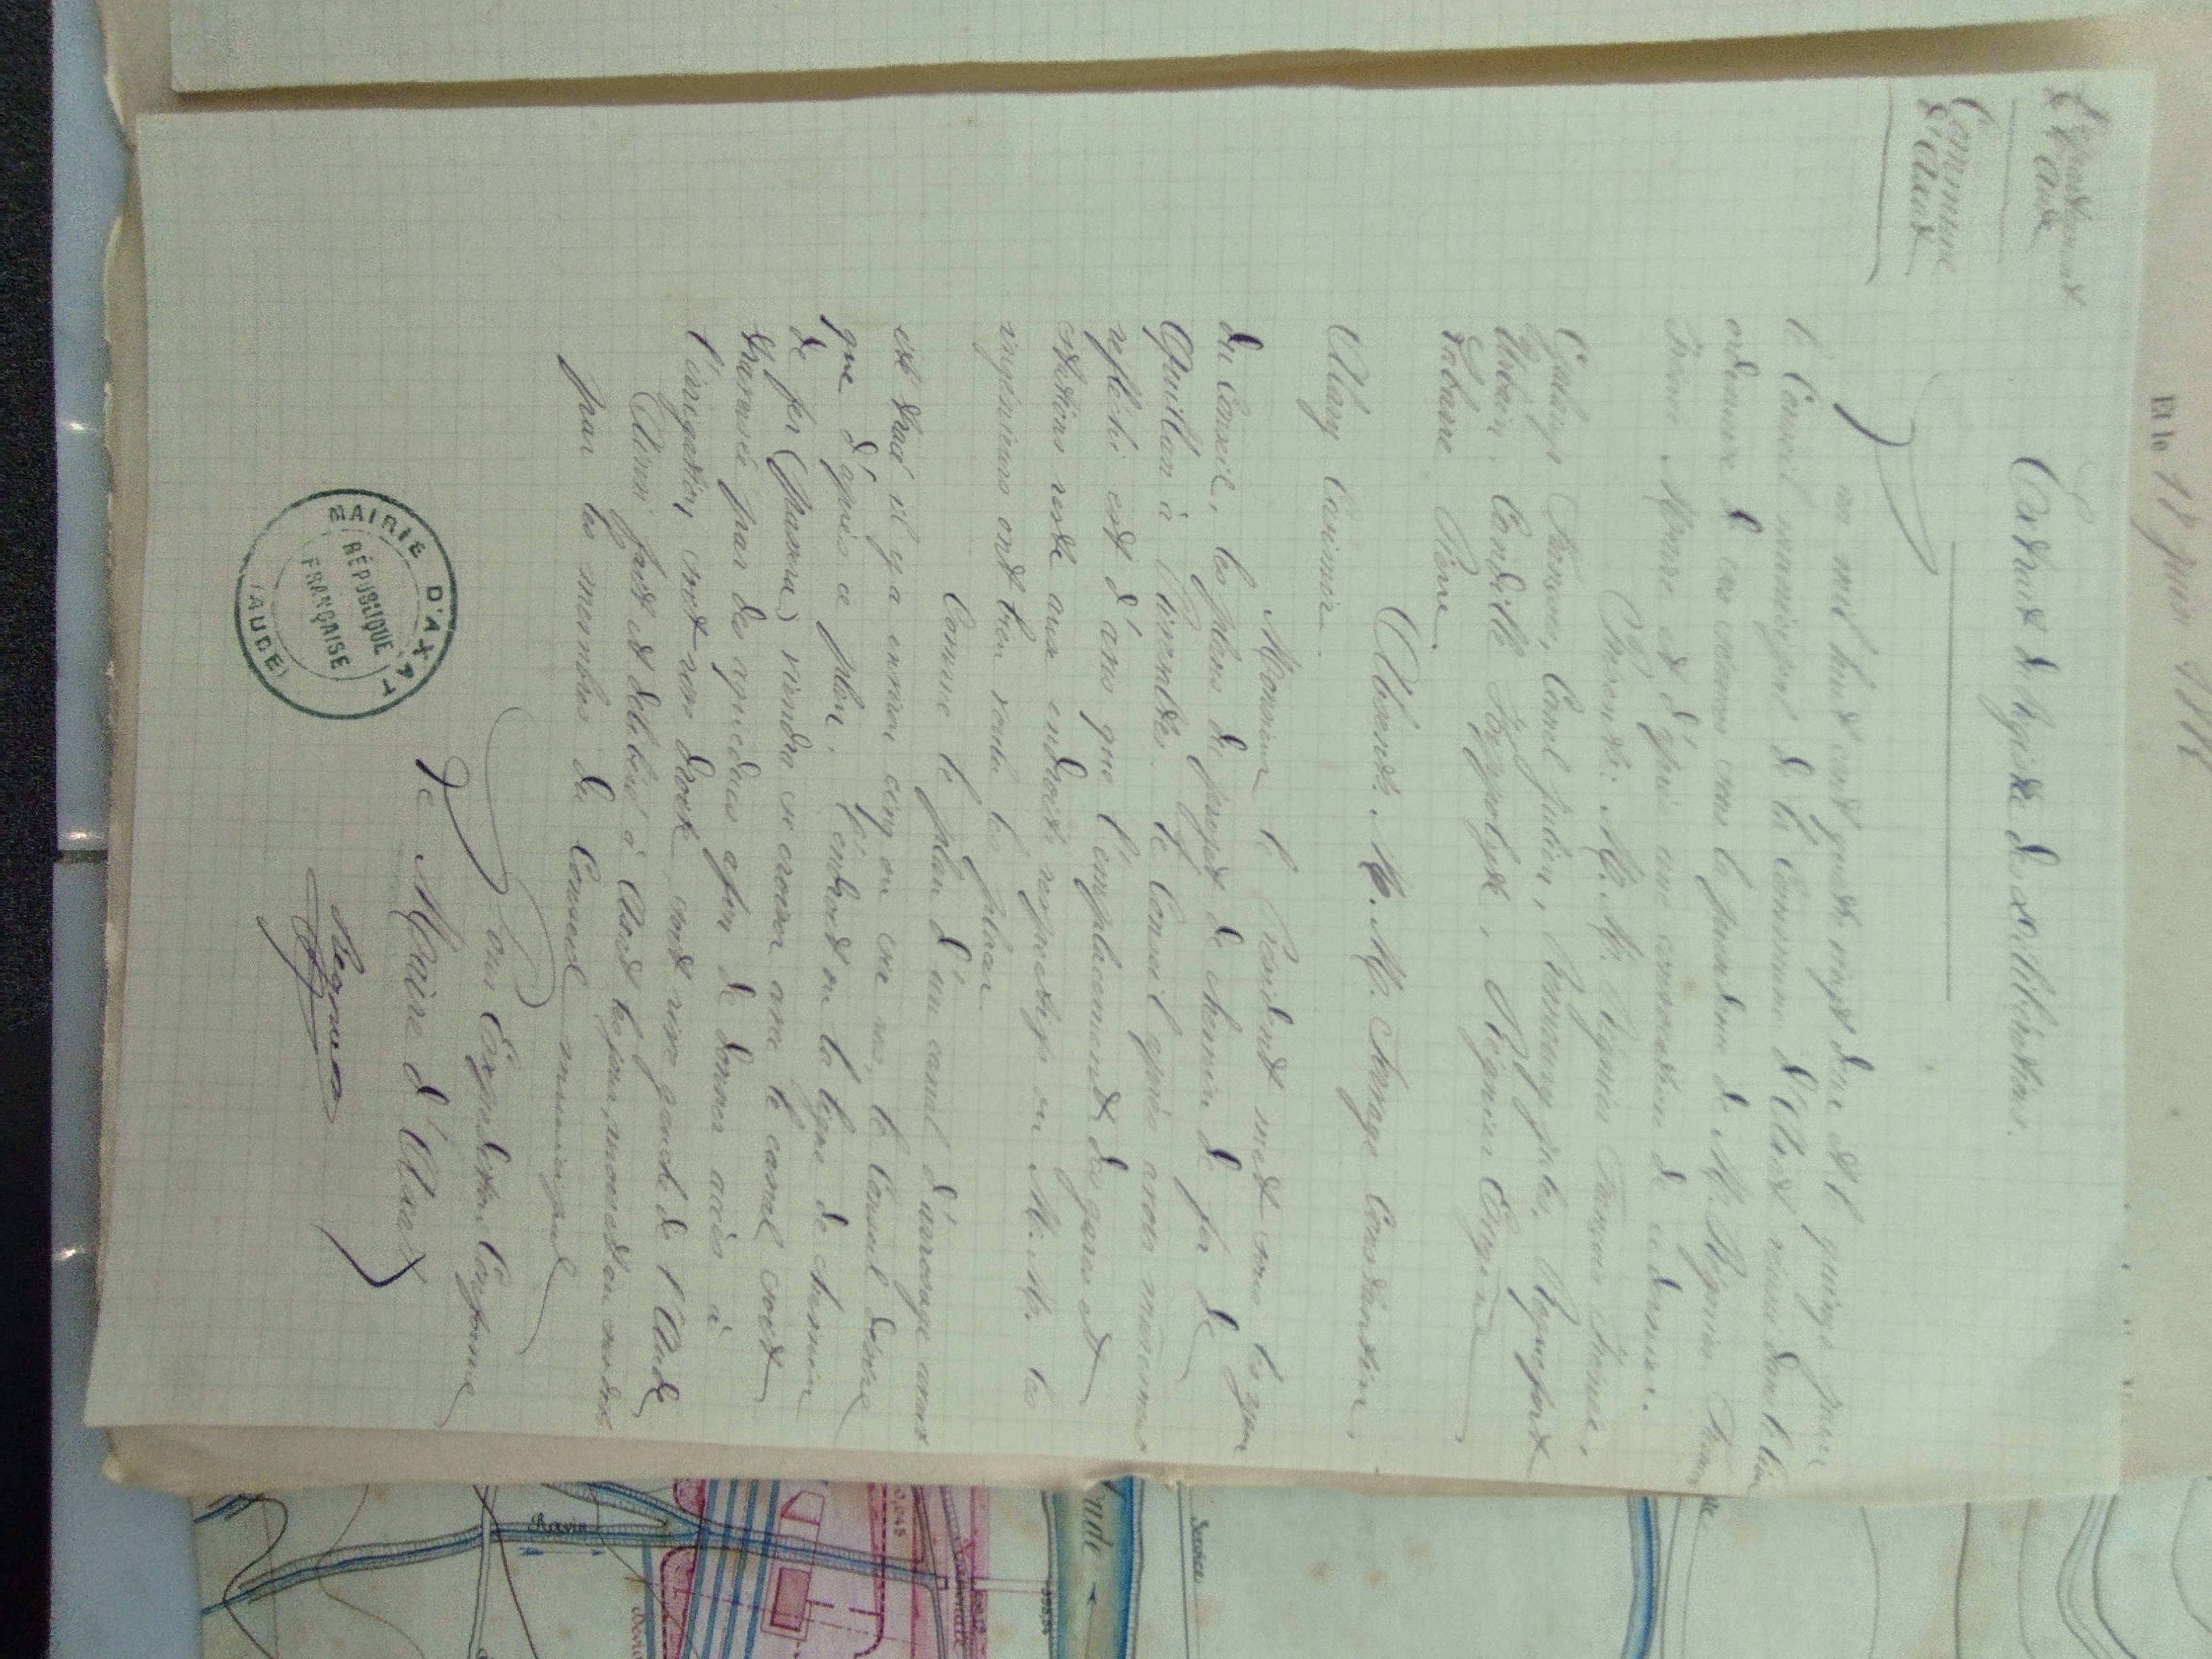 Et le 18 juin 188
Département
de l'Aude
Commune
d'Axat
Extrait du Registre des Délibérations.
L'an mil huit cent quatre vingt deux et le quinze juin
le Conseil municipal de la Commune d'Axat réuni dans le lieu
ordinaire de ses séances sous la présidence de M. Régnier François
Irénée Maire et d'après une convocation de ce dernier.
Présents: M. M. Régnier François Irénée,
Galaup François, Canel Julien, Jules, Roquefort
Urbain, Candille Hippolyte, Régnier Eugène
Labarre Pierre.
Absents. M. M. Servage Constantin,
Alary Casimir.
Monsieur le Président met sous les yeux
du Conseil, les plans du projet de chemin de fer de
Quillan à Rivesaltes. Le Conseil après avoir mûrement
refléchi est d'avis que l'emplacement des gares et
stations reste aux endroits respectifs ou M. M. les
ingénieurs ont bien voulu les placer.
Comme le plan d'un canal d'arrosage avait
été tracé il y a environ cinq ou six ans, le Conseil désire
que d'après ce plan, l'endroit ou la ligne de chemin
de fer (passera) viendra se croiser avec le canal soit
traversée par des aqueducs afin de donner accès à
l'irrigation, soit rive droite, soit rive gauche de l'Aude
Ainsi fait et délibéré à Axat les jour, mois et an susdits
par les membres du Conseil municipal
Pour Expédition Conforme
Le Maire d'Axat
Regnier
MAIRIE D'AXAT
RÉPUBLIQUE
FRANÇAISE
(AUDE)
Service
ude
0,045
Ravin